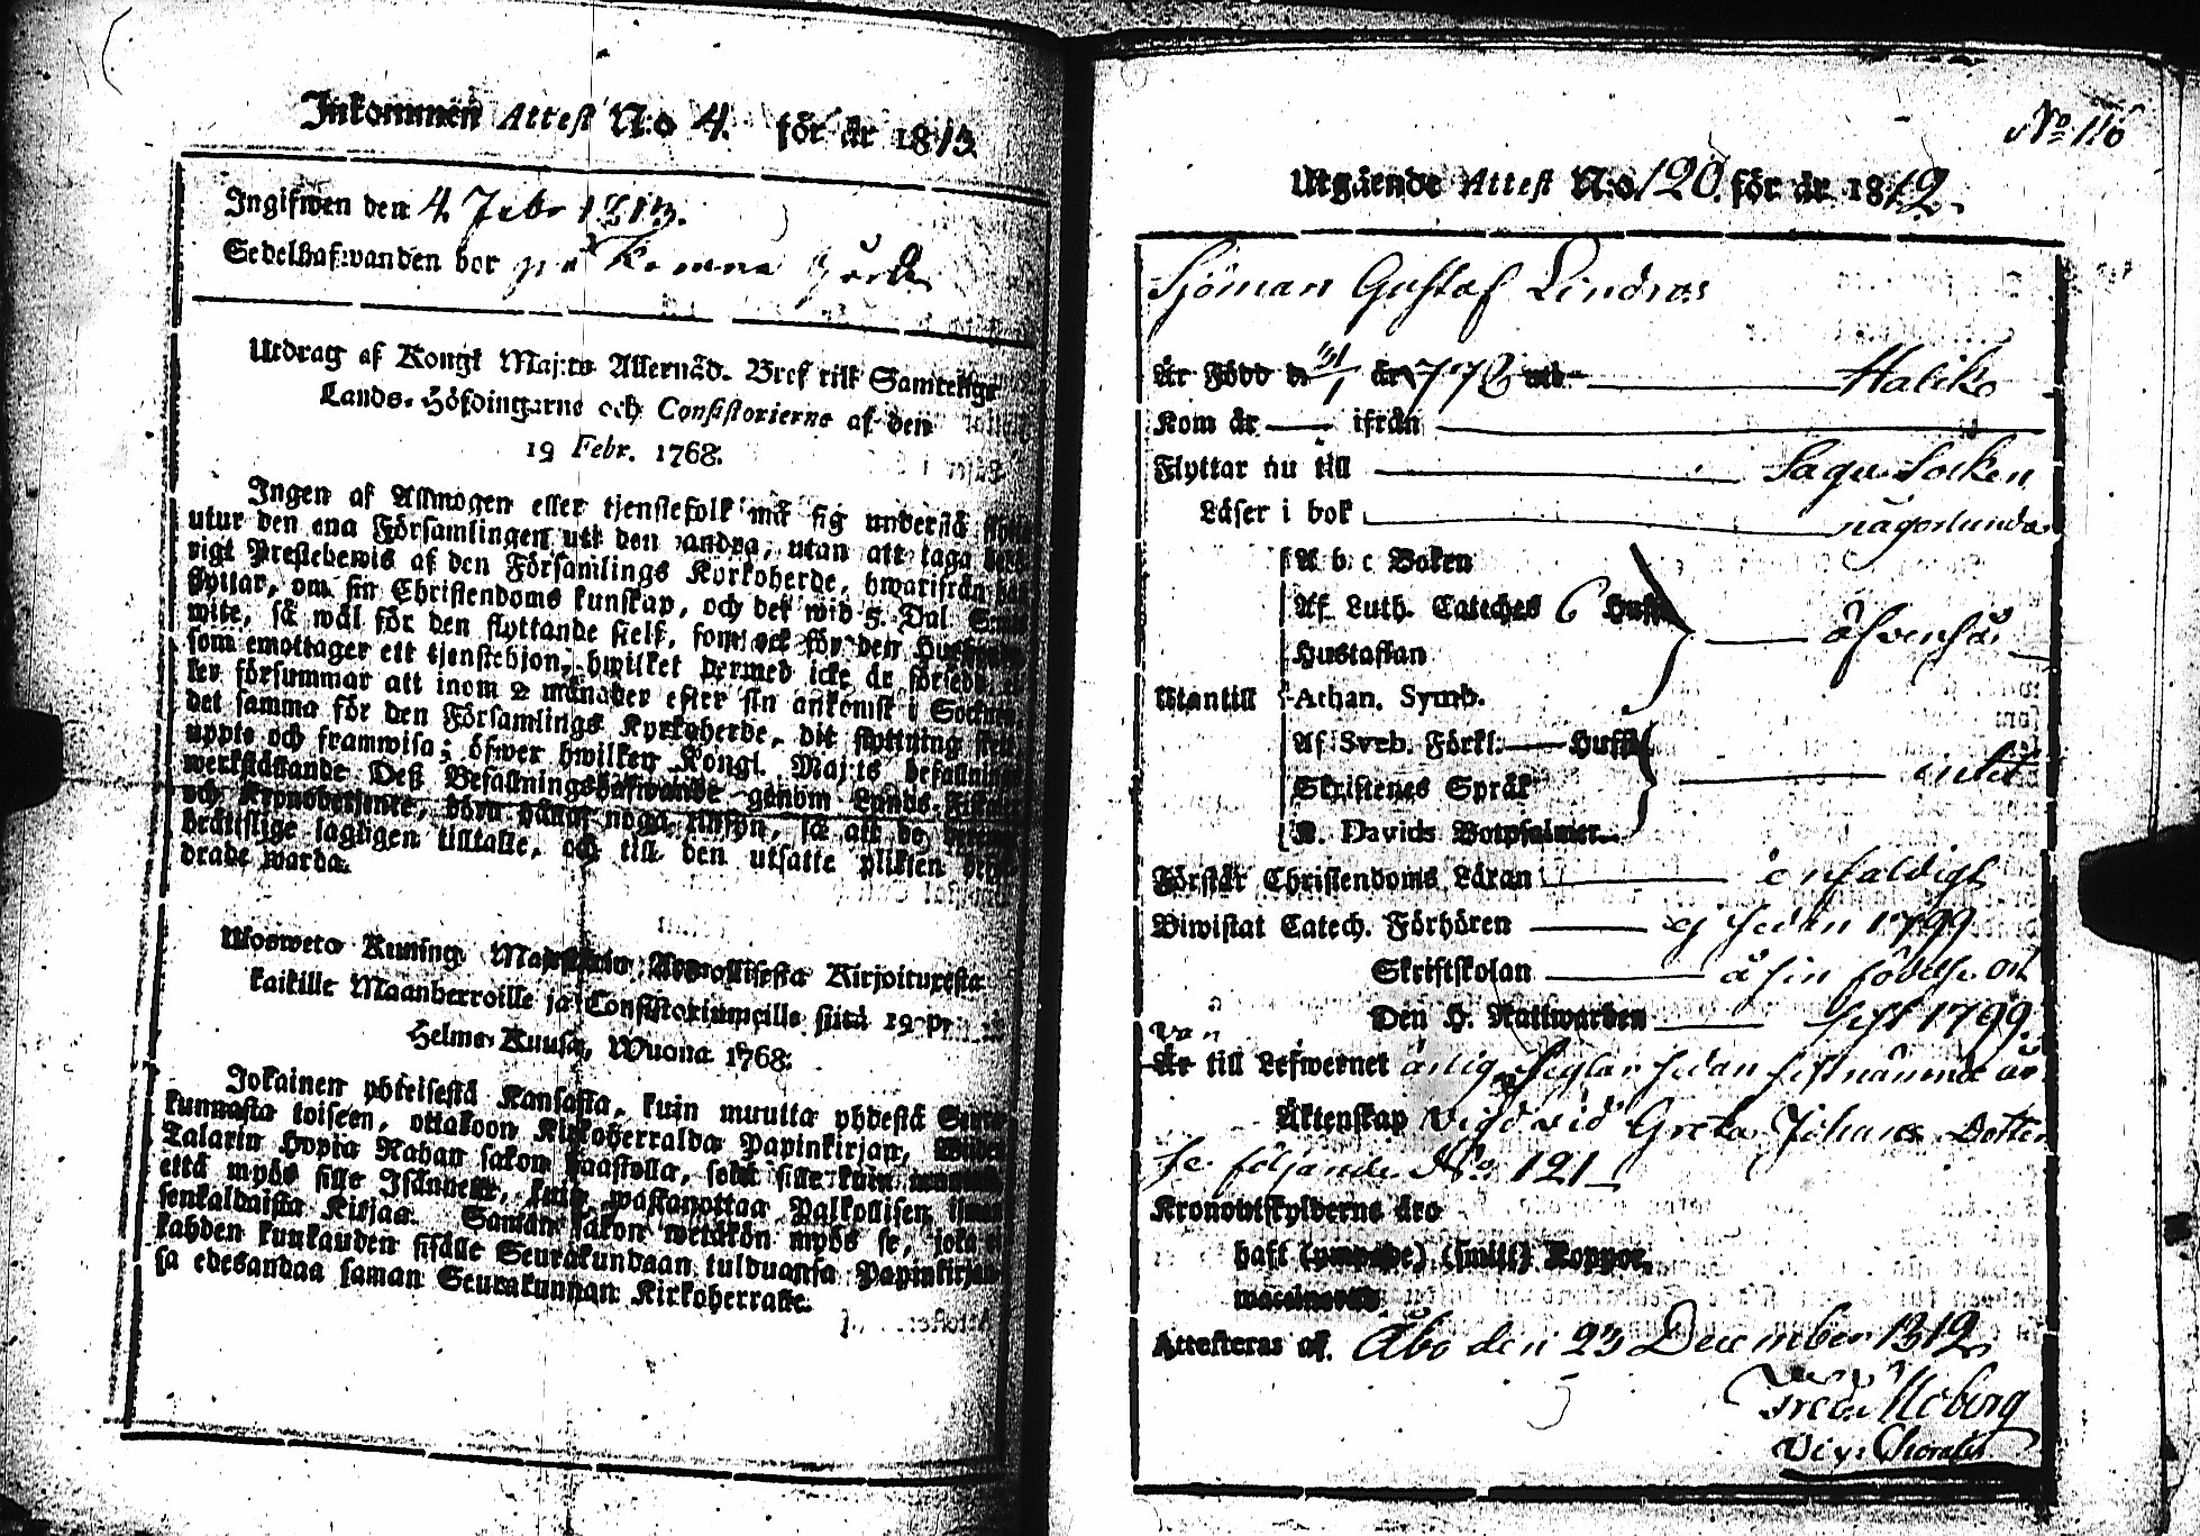 Inkommen Attest N:o 4. för år 1813.
Ingifwen den 4 Febr 1813.
Sedelhafwanden bor på gård
Utdrag af Kongl Maj:ts Allernåd. Bref till Samtelige
Lands-Höfdingarne och Consistorierne af den
19 Febr. 1768.
Ingen af Allmogen eller tjenstefolk må sig understå
utur den ena Församlingen till den andra, utan att taga
rigt Prestebewis af den Församlings Kyrkoherde, hwarifrån
flyttar, om sin Christendoms kunskap, och det wid 5. Dal
wite, så wäl för den flyttande sielf, som ock för den
som emottager ett tjenstehjon, hwilket dermed icke är försedt,
ler försummar att inom 2 månader efter sin ankomst i Socknen,
det samma för den Församlings Kyrkoherde, dit flyttning
uppte och framwisa; öfwer hwilken Kongl. Maj:ts befallning
werkställande Deß Befallningshafwande genom Lands-Fiskaler
och Kronobetjente, böra hålla noga tillsyn, så att de
brättslige lagligen tilltalte, och till den utsatte plikten
drade warda.
Ulosweto Kuning. Armollisesta Kirjoituxesta
kaikille Maanherroille ja Consistoriumeille siitä 19 p:
Helme-Kuusa, Wuona 1768.
Jokainen yhteisestä Kansasta, kuin muutta yhdestä
kunnasta toiseen, ottakoon Kirkoherralda Papinkirjan,
Talarin Hopia Rahan sakon haastolla, sekä sille kuin
että myös sille Isännelle, kuin wastanottaa Palkollisen ilman
senkaldaista Kirjaa. Saman sakon wetäkön myös se, joka ei
kahden kuukauden sisälle Seurakundaan tulduansa Papinkirjan
sa edesandaa saman Seurakunnan Kirkoherralle.
No 116
Utgående Attest N:o 120 för år 1812
Sjöman Gustaf Lindros
Är Född d. 31/1 år 1772 uti Haliko
Kom år ifrån
Flyttar nu till Sagu Socken
Läser i bok någorlunda
A b c Boken
Af Luth. Cateches 6 Huff
Hustaflan äfvenså
Utantill Athan. Symb.
Af Sveb. Förkl. Huff
Skriftenes Språk intet
K. Davids Botpsalmer
Förstår Christendoms Läran enfaldigt
Biwistat Catech. Förhören ej sedan 1799
Skriftskolan å sin födelse ort
Den H. Nattwarden sist 1799.
Är till Lefwernet ärlig, seglar sedan sistnämnde år
Äktenskap vigd vid Greta Johans Dotter
se följande No 121
Kronoutskylderne äro
haft (ympade) (smitt) Koppor,
Attesteras af. Åbo den 23 December 1812
Moberg